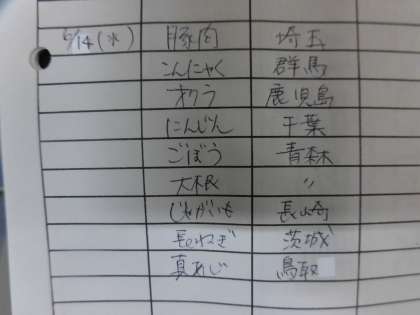 6/14(水) 豚肉 埼玉
こんにゃく 群馬
オクラ 鹿児島
にんじん 千葉
ごぼう 青森
大根 〃
じゃがいも 長崎
長ねぎ 茨城
真あじ 鳥取